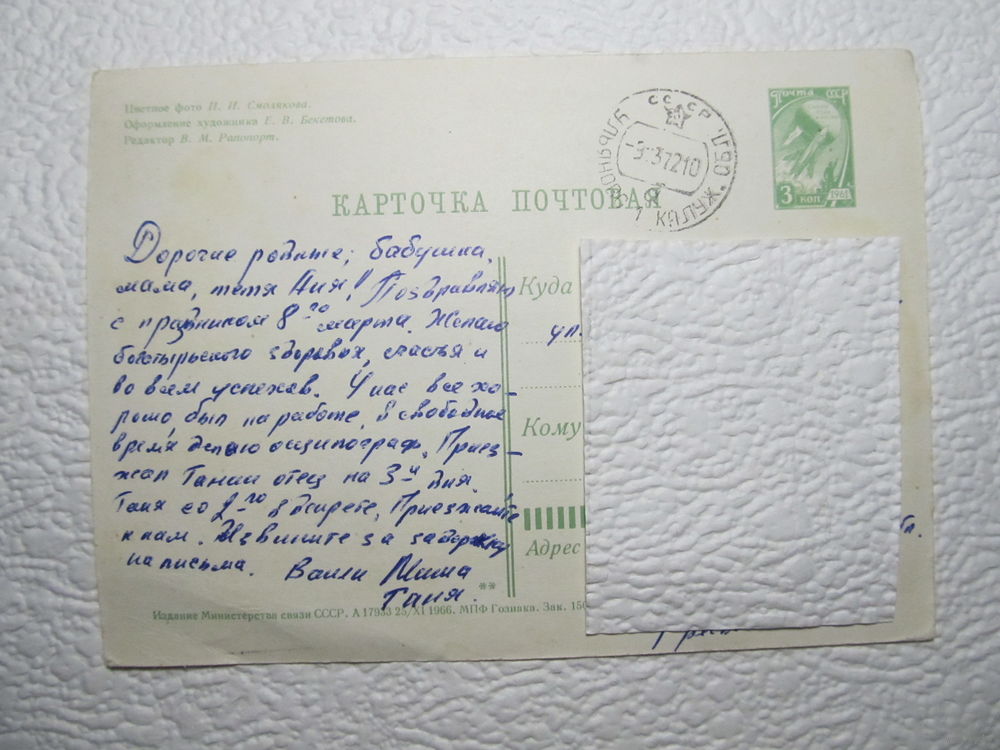 Цветное фото Н. И. Смолякова.
Оформление художника Е. В. Бекетова.
Редактор В. М. Рапопорт.
ПОЧТА СССР
3 КОП 1961
СССР
-9.3.7210
КАРТОЧКА ПОЧТОВАЯ
Дорогие родные; бабушка,
мама, тетя Аня! Поздравляю
с праздником 8-го марта. Желаю
богатырьского здоровья, счастья и
во всем успехов. У нас все хо-
рошо, был на работе, в свободное
время делаю осциллограф. Приез-
жал Танин отец на 3-й дня.
Таня со 2-го в декрете. Приезжайте
к нам. Извините за задержку
на письма. Ваши Миша
Таня.
Куда
ул.
Кому
Адрес
**
Издание Министерства связи СССР. А 17933 25/XI 1966. МПФ Гознака. Зак. 150